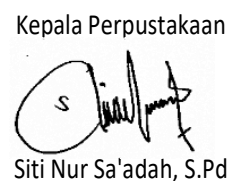 Kepala Perpustakaan
Siti Nur Sa'adah, S.Pd